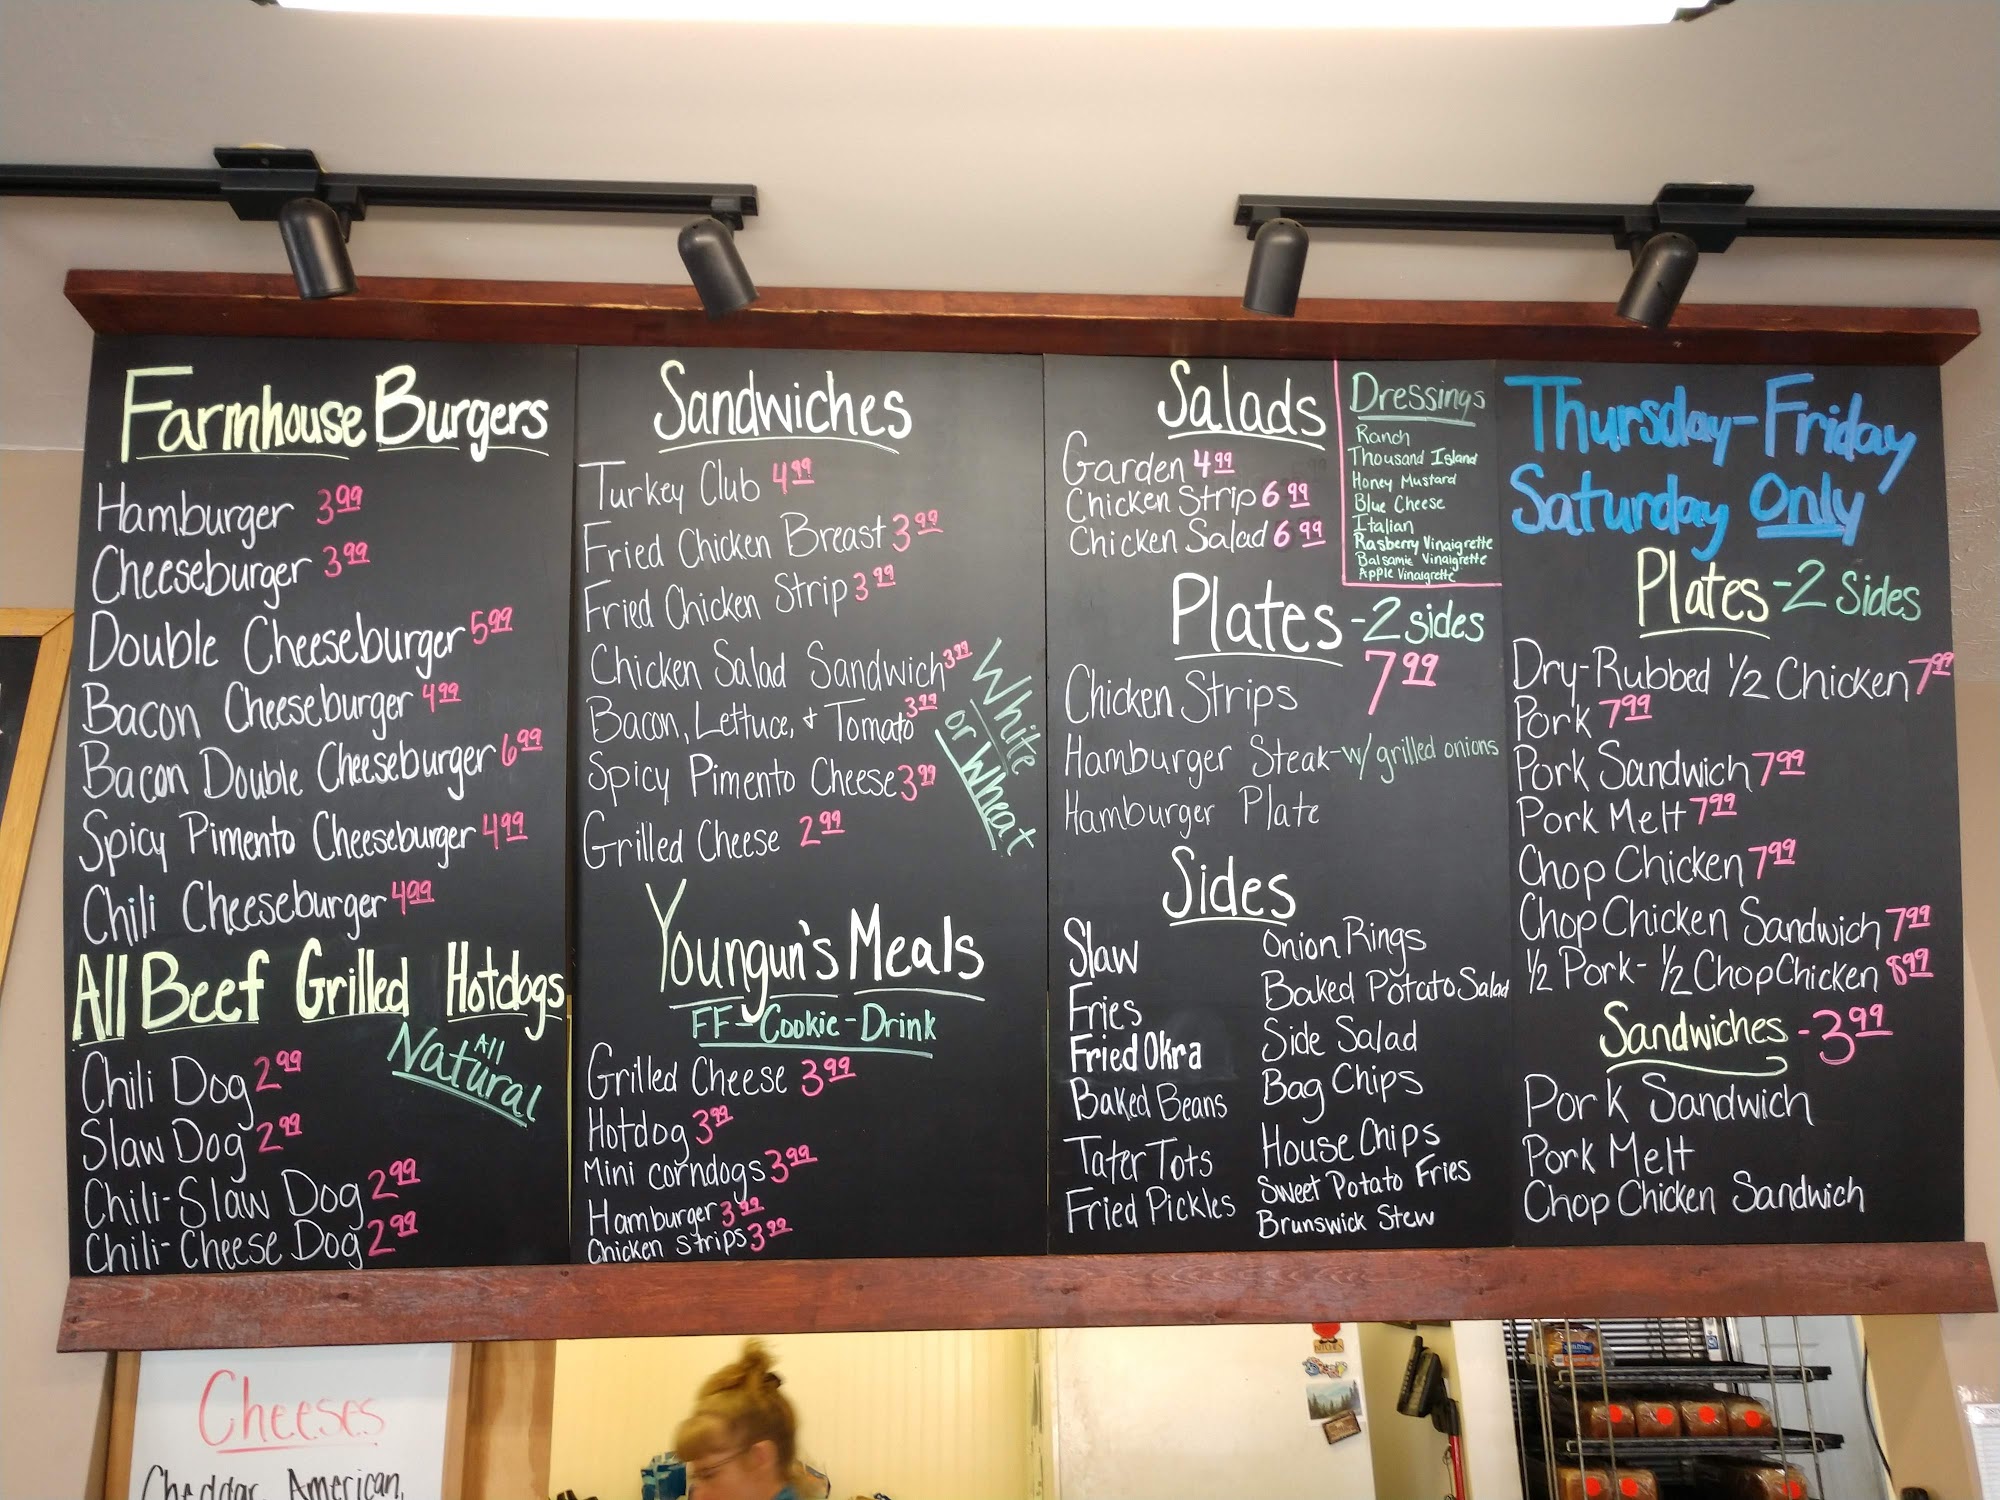 Farmhouse Burgers
Hamburger 3.99
Cheeseburger 3.99
Double Cheeseburger 5.99
Bacon Cheeseburger 4.99
Bacon Double Cheeseburger 6.99
Spicy Pimento Cheeseburger 4.99
Chili Cheeseburger 4.99
All Beef Grilled Hotdogs
All
Natural
Chili Dog 2.99
Slaw Dog 2.99
Chili-Slaw Dog 2.99
Chili-Cheese Dog 2.99
Sandwiches
Turkey Club 4.99
Fried Chicken Breast 3.99
Fried Chicken Strip 3.99
Chicken Salad Sandwich 3.99
Bacon, Lettuce, + Tomato 3.99
Spicy Pimento Cheese 3.99
Grilled Cheese 2.99
White
or Wheat
Youngun's Meals
FF-Cookie-Drink
Grilled Cheese 3.99
Hotdog 3.99
Mini corndogs 3.99
Hamburger 3.99
Chicken Strips 3.99
Salads
Garden 4.99
Chicken Strip 6.99
Chicken Salad 6.99
Dressings
Ranch
Thousand Island
Honey Mustard
Blue Cheese
Italian
Rasberry Vinaigrette
Balsamic Vinaigrette
Apple Vinaigrette
Plates-2 sides
7.99
Chicken Strips
Hamburger Steak-w/ grilled onions
Hamburger Plate
Sides
Slaw
Fries
Fried Okra
Baked Beans
Tater Tots
Fried Pickles
Onion Rings
Baked Potato Salad
Side Salad
Bag Chips
House Chips
Sweet Potato Fries
Brunswick Stew
Thursday-Friday
Saturday Only
Plates-2 Sides
Dry-Rubbed 1/2 Chicken 7.99
Pork 7.99
Pork Sandwich 7.99
Pork Melt 7.99
Chop Chicken 7.99
Chop Chicken Sandwich 7.99
1/2 Pork-1/2 Chop Chicken 8.99
Sandwiches-3.99
Pork Sandwich
Pork Melt
Chop Chicken Sandwich
Cheeses
Cheddar, American,